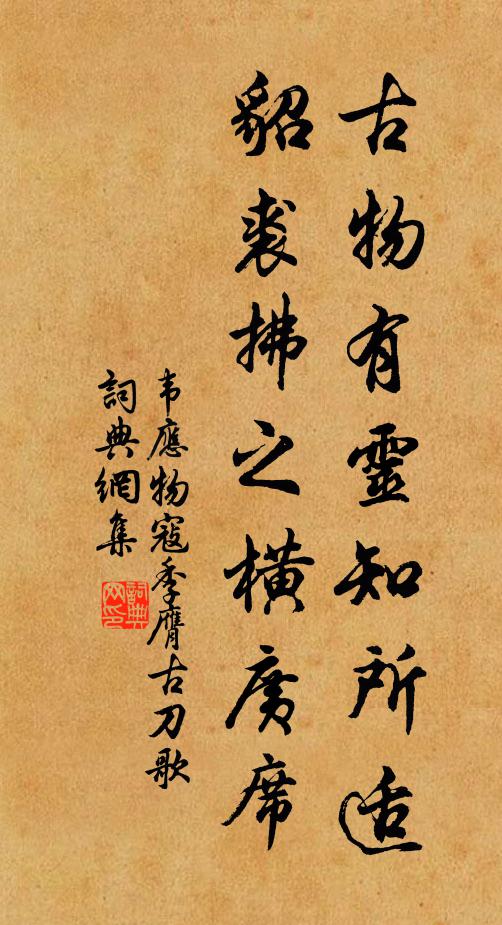 古物有靈知所适
貂裘拂之橫廣席
韦應物寇季膺古刀歌
詞典網集
詞典网印